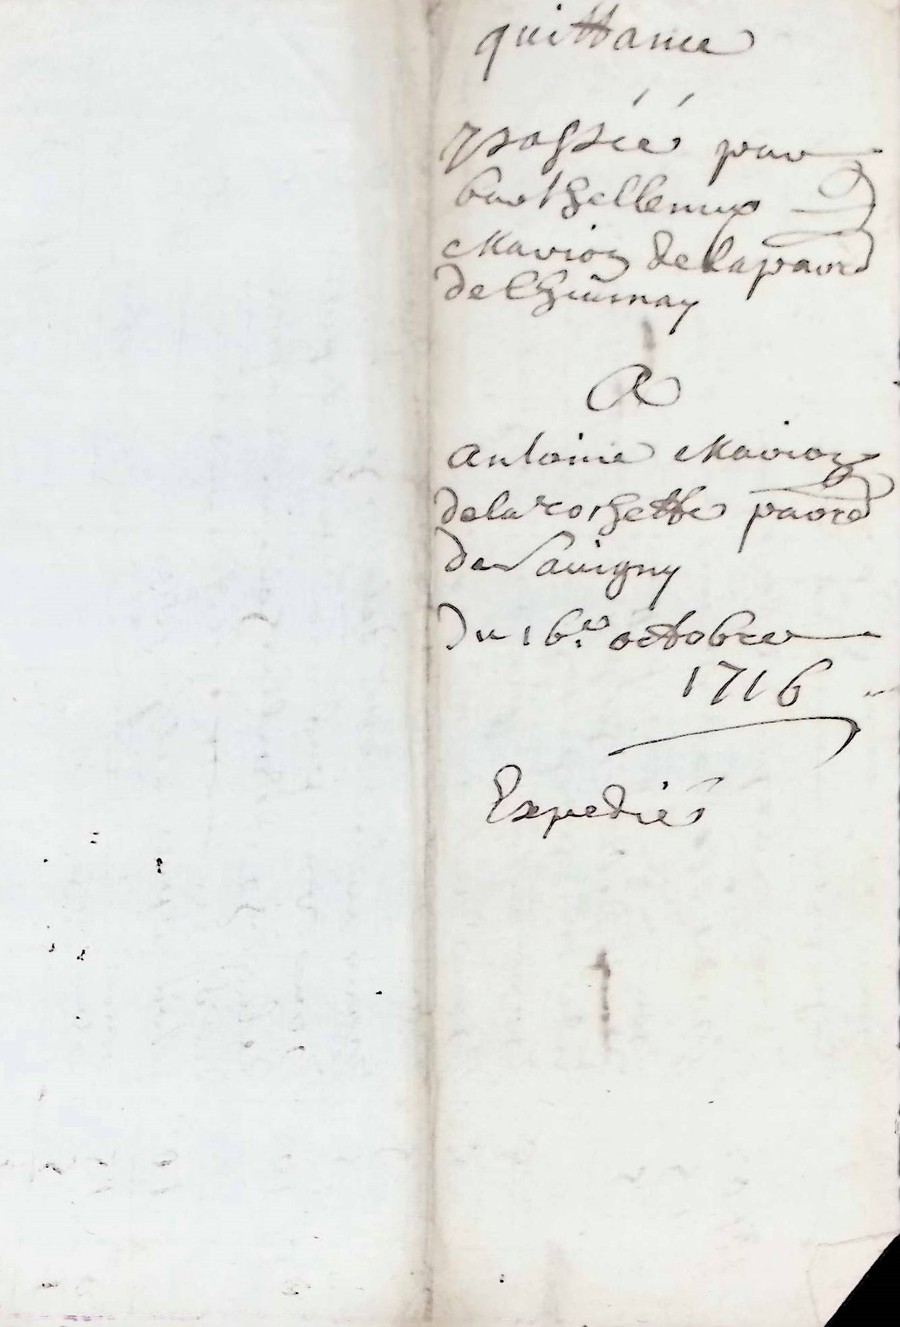 quittance
passéé par
barthellemy
Marion de la parr
de Chiumay
A
Antoine Marion
de la rochette parr
de Savigny
du 16.e octobre
1716
Expedié